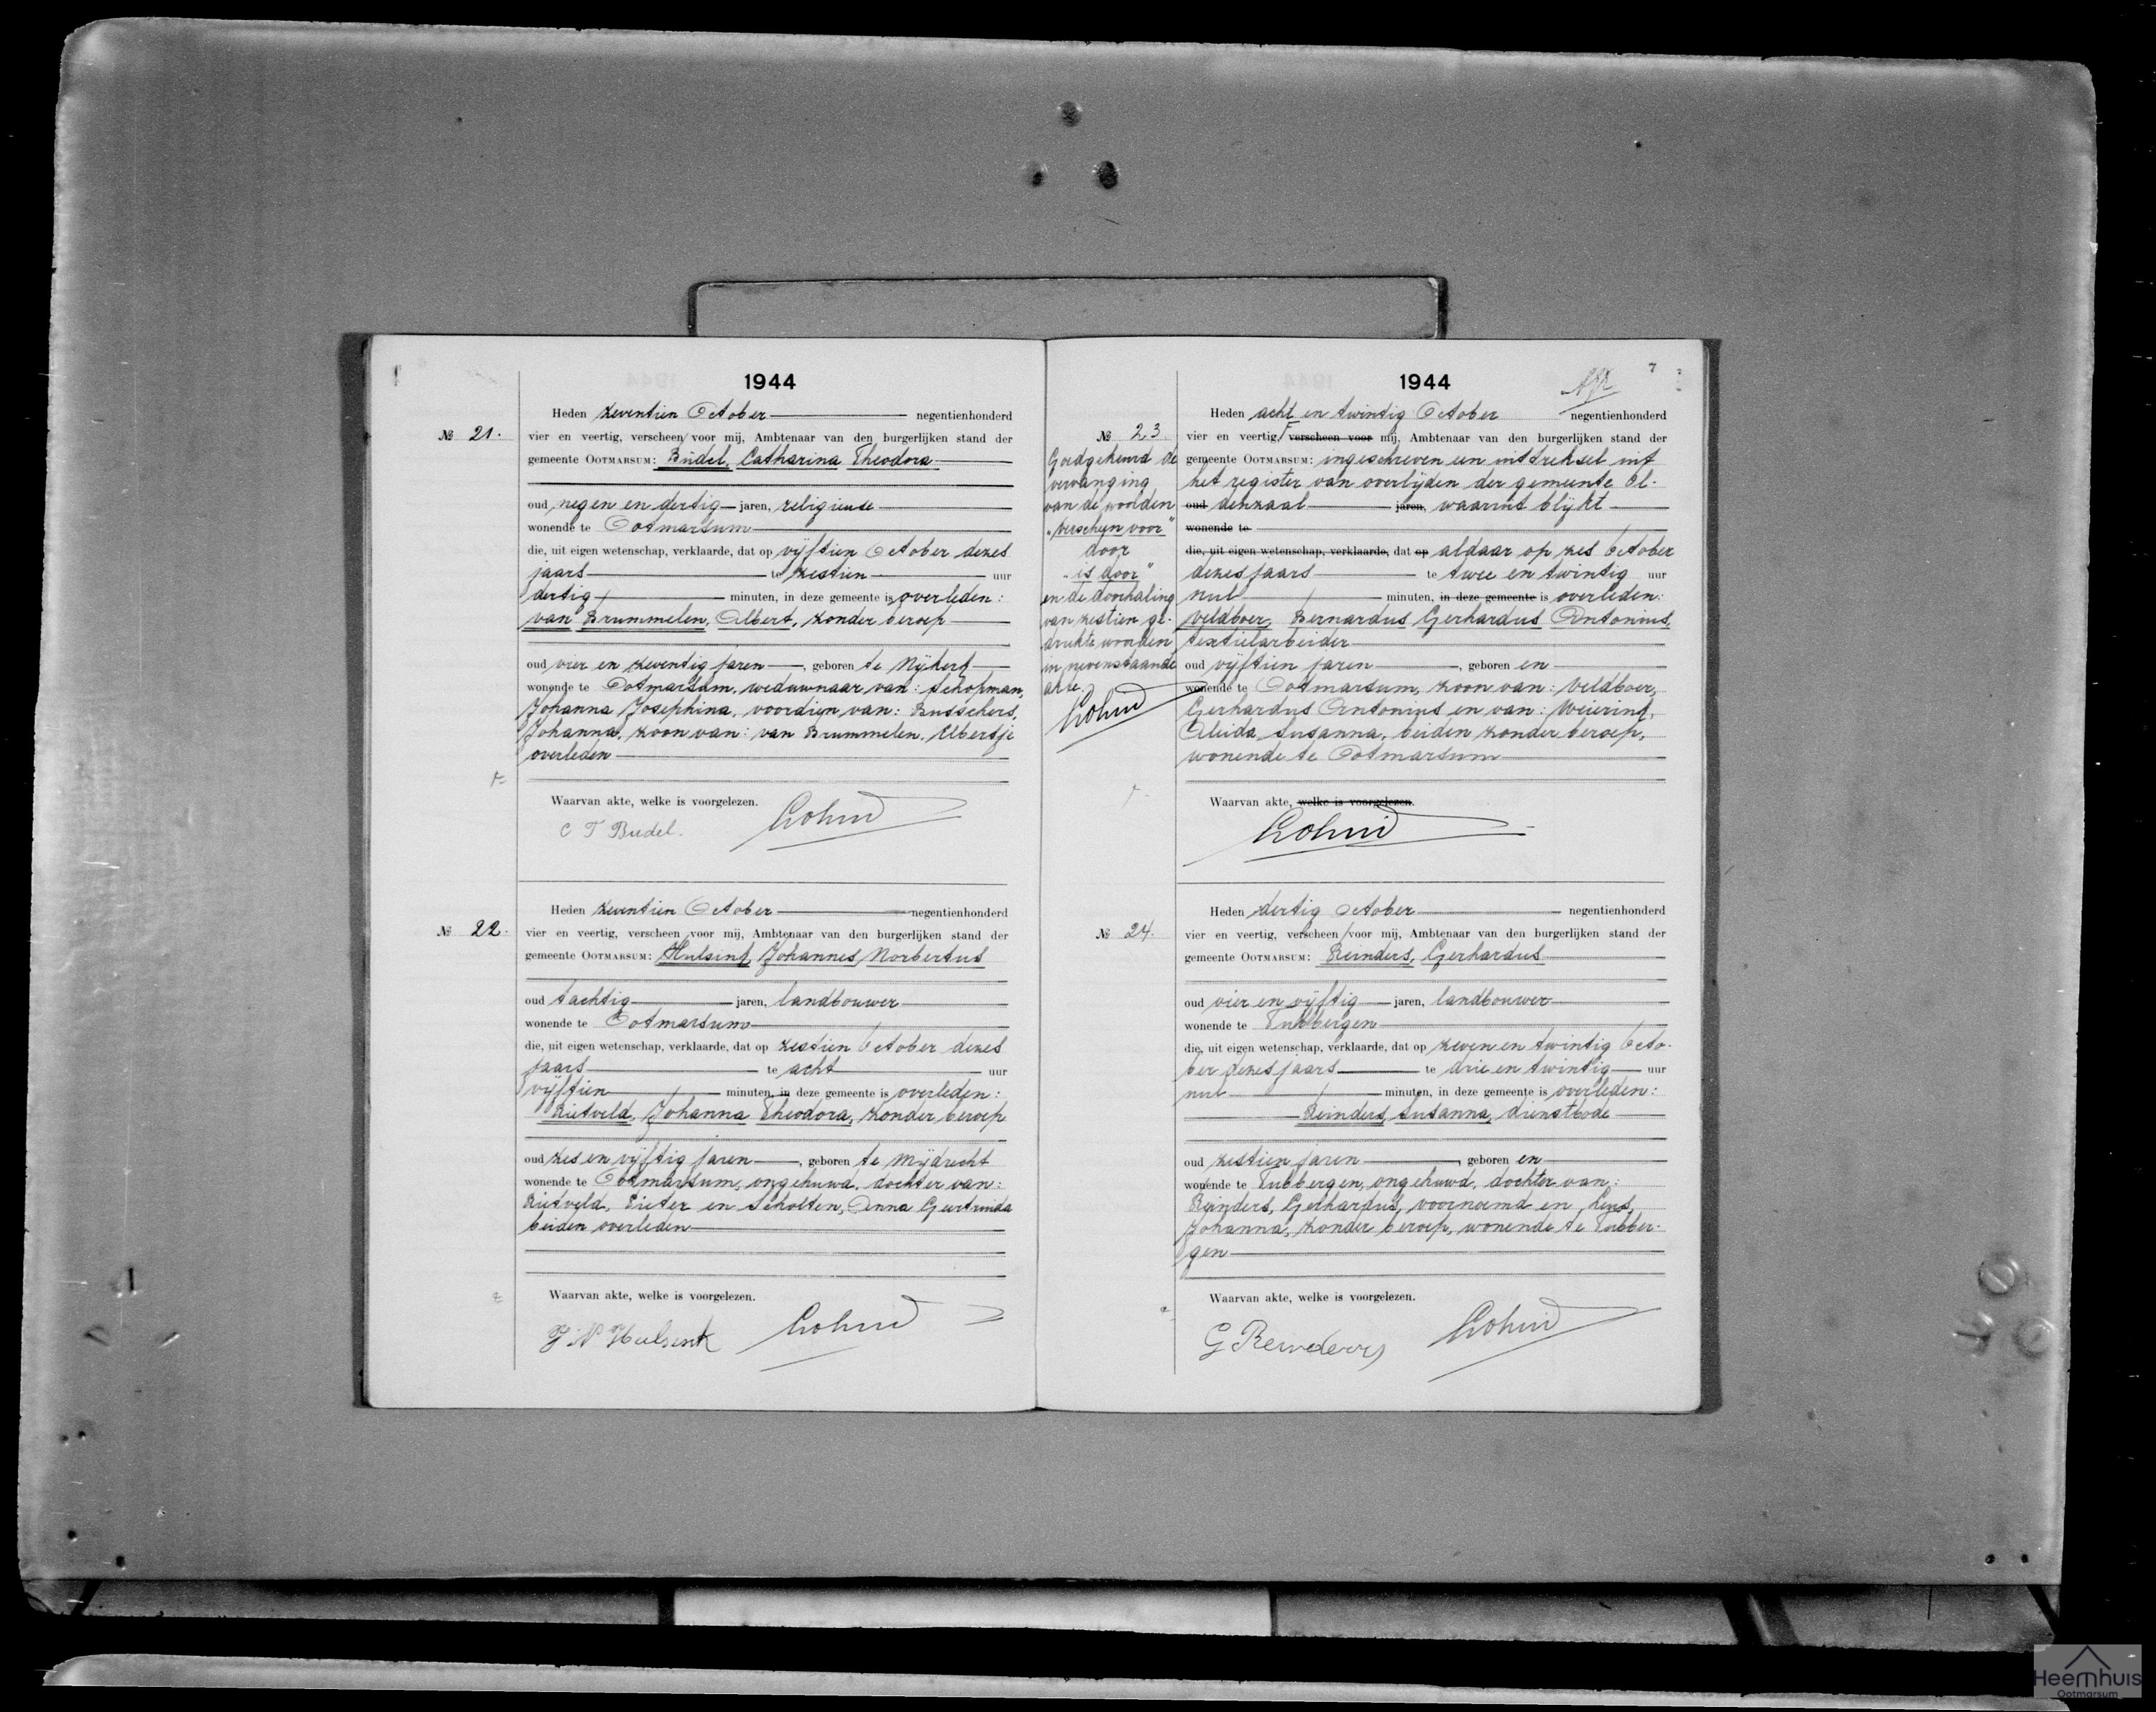 1944
Heden zeventien October negentienhonderd
№ 21. vier en veertig, verscheen voor mij, Ambtenaar van den burgerlijken stand der
gemeente OOTMARSUM: Büdel, Catharina Theodora
oud negen en dertig jaren, religieuse
wonende te Ootmarsum
die, uit eigen wetenschap, verklaarde, dat op vijftien October dezes
jaars te zestien uur
dertig minuten, in deze gemeente is overleden:
van Brummelen, Albert, zonder beroep
oud vier en zeventig jaren, geboren te Nijkerk
wonende te Ootmarsum, weduwnaar van: Schopman,
Johanna Josephina, voordien van: Busschers,
Johanna, zoon van: van Brummelen, Elbertje
overleden
Waarvan akte, welke is voorgelezen.
C T Büdel.
Heden zeventien October negentienhonderd
№ 22. vier en veertig, verscheen voor mij, Ambtenaar van den burgerlijken stand der
gemeente OOTMARSUM: Hulsink, Johannes Norbertus
oud tachtig jaren, landbouwer
wonende te Ootmarsum
die, uit eigen wetenschap, verklaarde, dat op zestien October dezes
jaars te acht uur
vijftien minuten, in deze gemeente is overleden:
Rietveld, Johanna Theodora, zonder beroep
oud zes en vijftig jaren, geboren te Mijdrecht
wonende te Ootmarsum, ongehuwd, dochter van:
Rietveld, Pieter en Scholten, Anna Geertruida
beiden overleden
Waarvan akte, welke is voorgelezen.
J N Hulsink
1944
7
Heden acht en twintig October negentienhonderd
№ 23. vier en veertig, verscheen voor mij, Ambtenaar van den burgerlijken stand der
gemeente OOTMARSUM: ingeschreven een uittreksel uit
het register van overlijden der gemeente Ol-
oud denzaal jaren, waaruit blijkt
wonende te
die, uit eigen wetenschap, verklaarde, dat op aldaar op zes October
dezes jaars te twee en twintig uur
nul minuten, in deze gemeente is overleden:
Veldboer, Bernardus Gerhardus Antonius,
textielarbeider
oud vijftien jaren, geboren en
wonende te Ootmarsum, zoon van: Veldboer,
Gerhardus Antonius en van: Weierink,
Aleida Susanna, beiden zonder beroep,
wonende te Ootmarsum
Waarvan akte, welke is voorgelezen.
Goedgekeurd de
vervanging
van de woorden
"verscheen voor"
door
"is door"
en de doorhaling
van zestien ge-
drukte woorden
in nevenstaande
akte.
Heden dertig October negentienhonderd
№ 24. vier en veertig, verscheen voor mij, Ambtenaar van den burgerlijken stand der
gemeente OOTMARSUM: Reinders, Gerhardus
oud vier en vijftig jaren, landbouwer
wonende te Tubbergen
die, uit eigen wetenschap, verklaarde, dat op zeven en twintig Octo-
ber dezes jaars te drie en twintig uur
nul minuten, in deze gemeente is overleden:
Reinders, Susanna, dienstbode
oud zestien jaren, geboren en
wonende te Tubbergen, ongehuwd, dochter van:
Reinders, Gerhardus, voornoemd en
Johanna, zonder beroep, wonende te Tubber-
gen
Waarvan akte, welke is voorgelezen.
G Reinders
Heemhuis
Ootmarsum